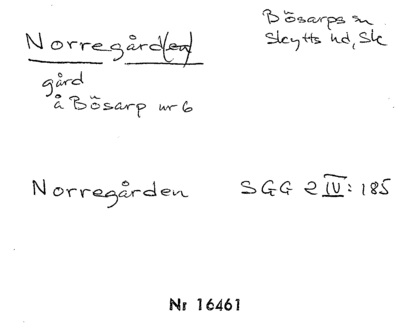 Norregård(en)
Bösarps sn
Skytts hd, Sk
gård
å Bösarp nr 6
Norregården
SGG 2 IV: 185
Nr 16461